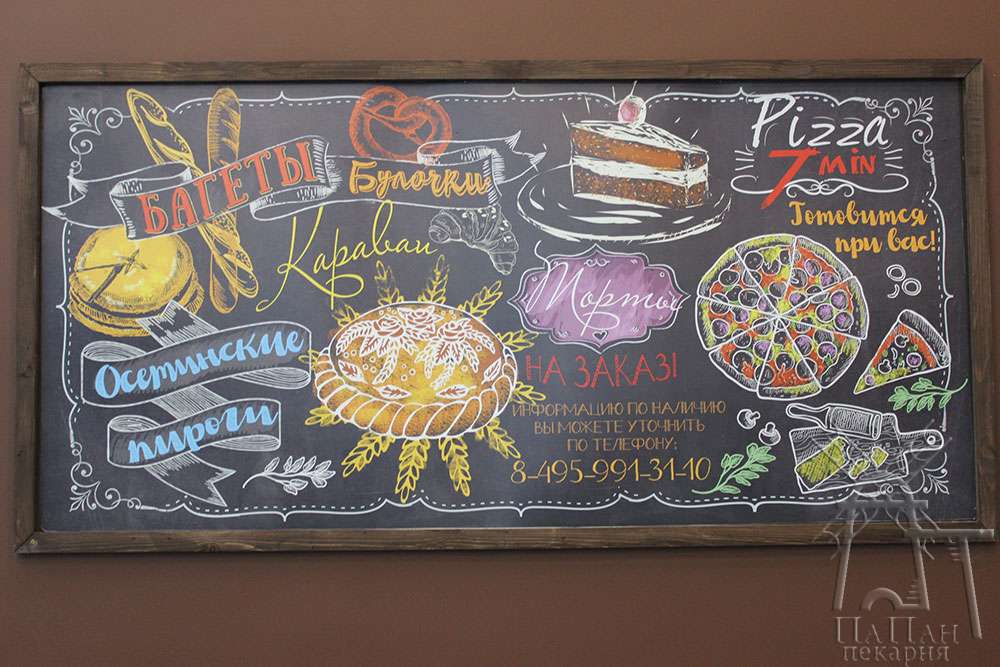 БАГЕТЫ
Булочки
Каравай
Осетинские
пироги
Торты
НА ЗАКАЗ!
ИНФОРМАЦИЮ ПО НАЛИЧИЮ
ВЫ МОЖЕТЕ УТОЧНИТЬ
ПО ТЕЛЕФОНУ:
8-495-991-31-10
Pizza
7 MIN
Готовится
при вас!
ПаПан
пекарня